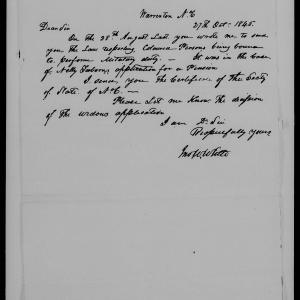 Warrenton N.C
27th Oct. 1845.
Dear Sir
On the 28th August Last you wrote me to send
you the Law respecting Coloured Persons being bound
to perform Military duty — It was in the Case
of Nelly Taborn's application for a Pension
I send you the Certificate of the Secty
of State of N.C. —
Please Let me Know the decision
of the widows application
I am D. Sir
Respectfully yours
Jno. White